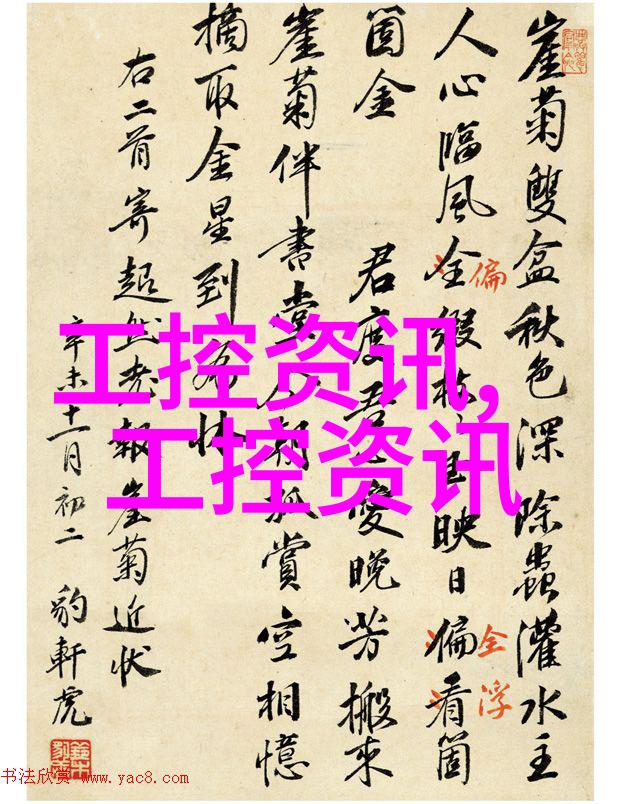 崖菊雙盆秋色深除蟲灌水主
人心臨風全綴枝映日偏看箇
偏
全
浮
箇金 君度君愛晚芳搬來
崖菊伴書堂朝孤賞空相憶
摘取金星到
右二首寄超然老報崖菊近狀
辛未十一月初二 豹軒虎
工控资讯,
工控资讯
书法欣赏 www.yac8.com